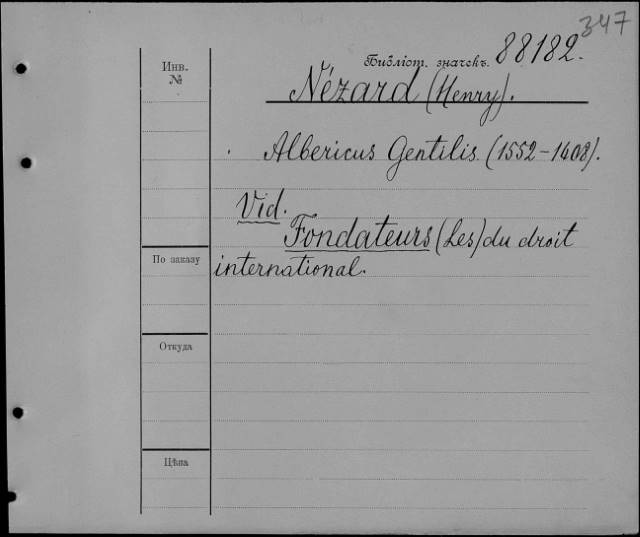 347
Библіот. значекъ. 88182.
Инв.
№
Nézard (Henry).
Albericus Gentilis. (1552-1608).
Vid.
Fondateurs (Les) du droit
По заказу
international.
Откуда
Цѣна